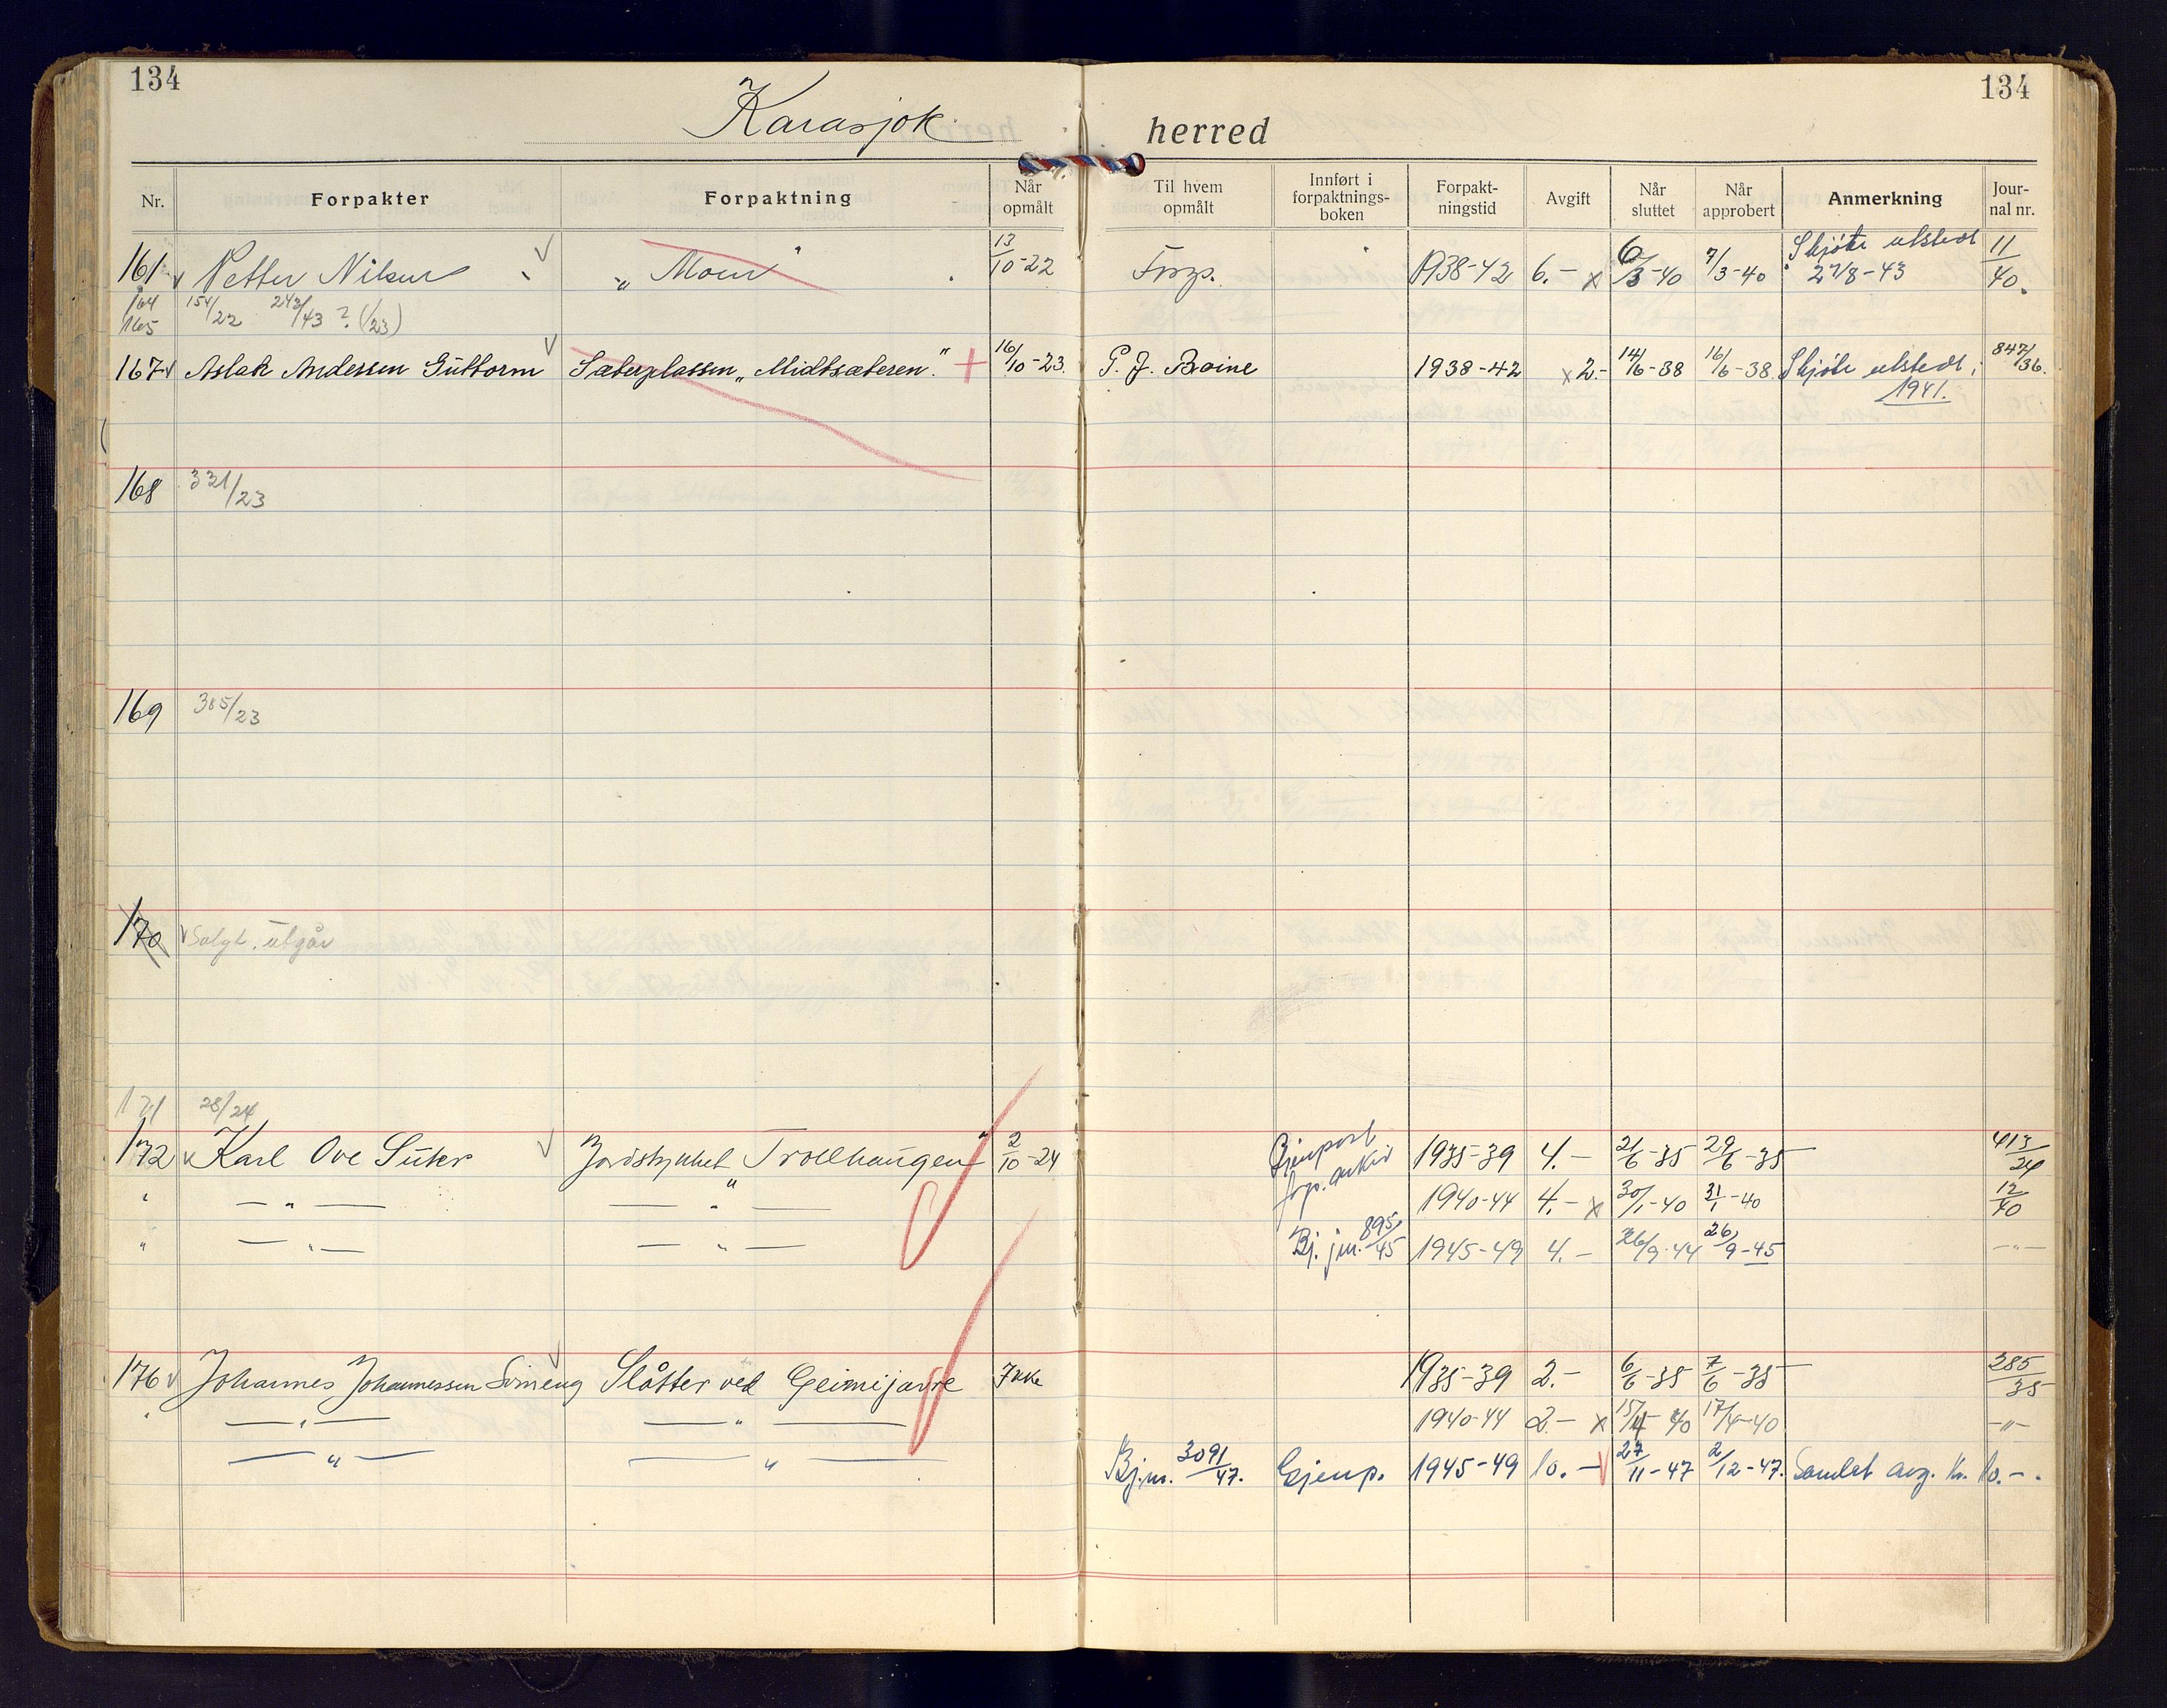 134 134
Karasjok herred
Nr. Forpakter Forpaktning Når opmålt Til hvem opmålt Innført i forpaktnings-boken Forpakt-ningstid Avgift Når sluttet Når approbert Anmerkning Jour-nal nr.
161 v "Moen" 13/10-22 Forp. 1938-42 6.- x 6/3-40 7/3-40 Skjøte utstedt 27/8-43 11/40.
164 154/22 243/43 ? (/23)
165
167 v Aslak Andersen Guttorm v Sæterplassen "Midtsæteren". + 16/10-23. P. J. Boine 1938-42 x 2.- 14/6-38 16/6-38. Skjøte utstedt i 1941. 847/36.
168 331/23
169 385/23
170 v Solgt. utgår
171 28/24
172 v Karl Ove v Jordstykket "Trollhaugen" 2/10-24 Gjenpart forp. arkiv 1935-39 4.- 21/6-35 29/6-35 413/24
" — " — — " — 1940-44 4.- x 30/1-40 31/1-40 12/40
" — " — — " — Bj. jnr. 895/45 1945-49 4.- 26/9-44 26/9-45 — " —
176 v Johannes Johannessen v Slåtter ved Geimijavre Ikke 1935-39 2.- 6/6-35 7/6-35 285/35
" — " — — " — 1940-44 2.- x 15/4-40 17/4-40 — " —
— " — — " — Bj.nr. 3091/47. Gjenp. 1945-49 10.- v 27/11-47 2/12-47. Samlet avg. kr. 10.-.